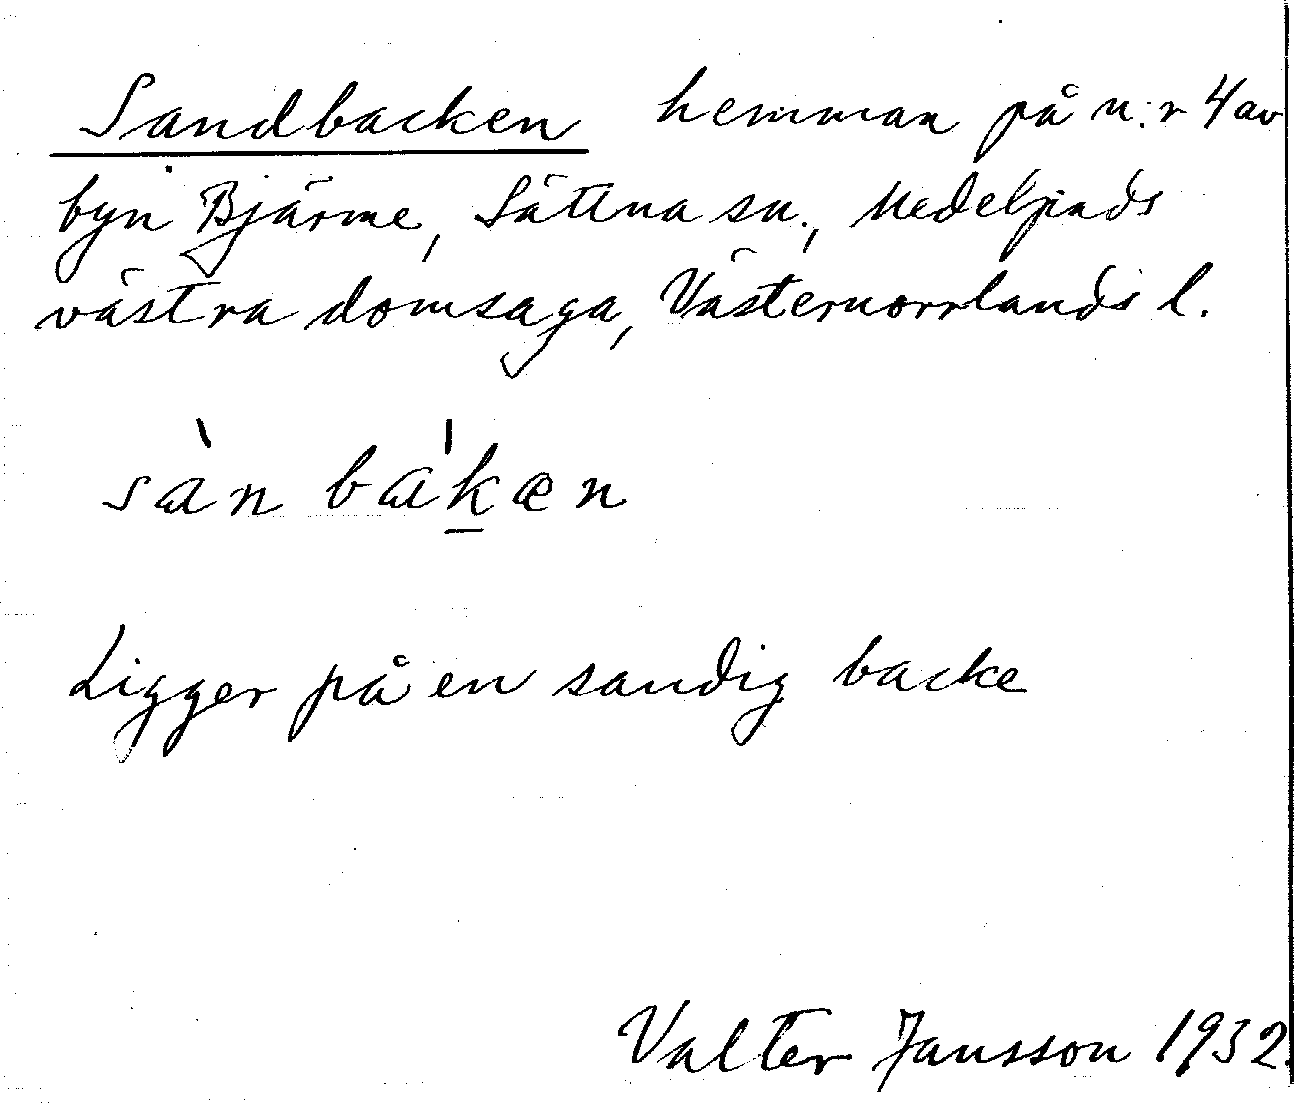 Sandbacken hemman på n:r 4 av
byn Bjärme, Sättna sn., Medelpads
västra domsaga, Västernorrlands l.
sàn bákæn
Ligger på en sandig backe
Valter Jansson 1932.